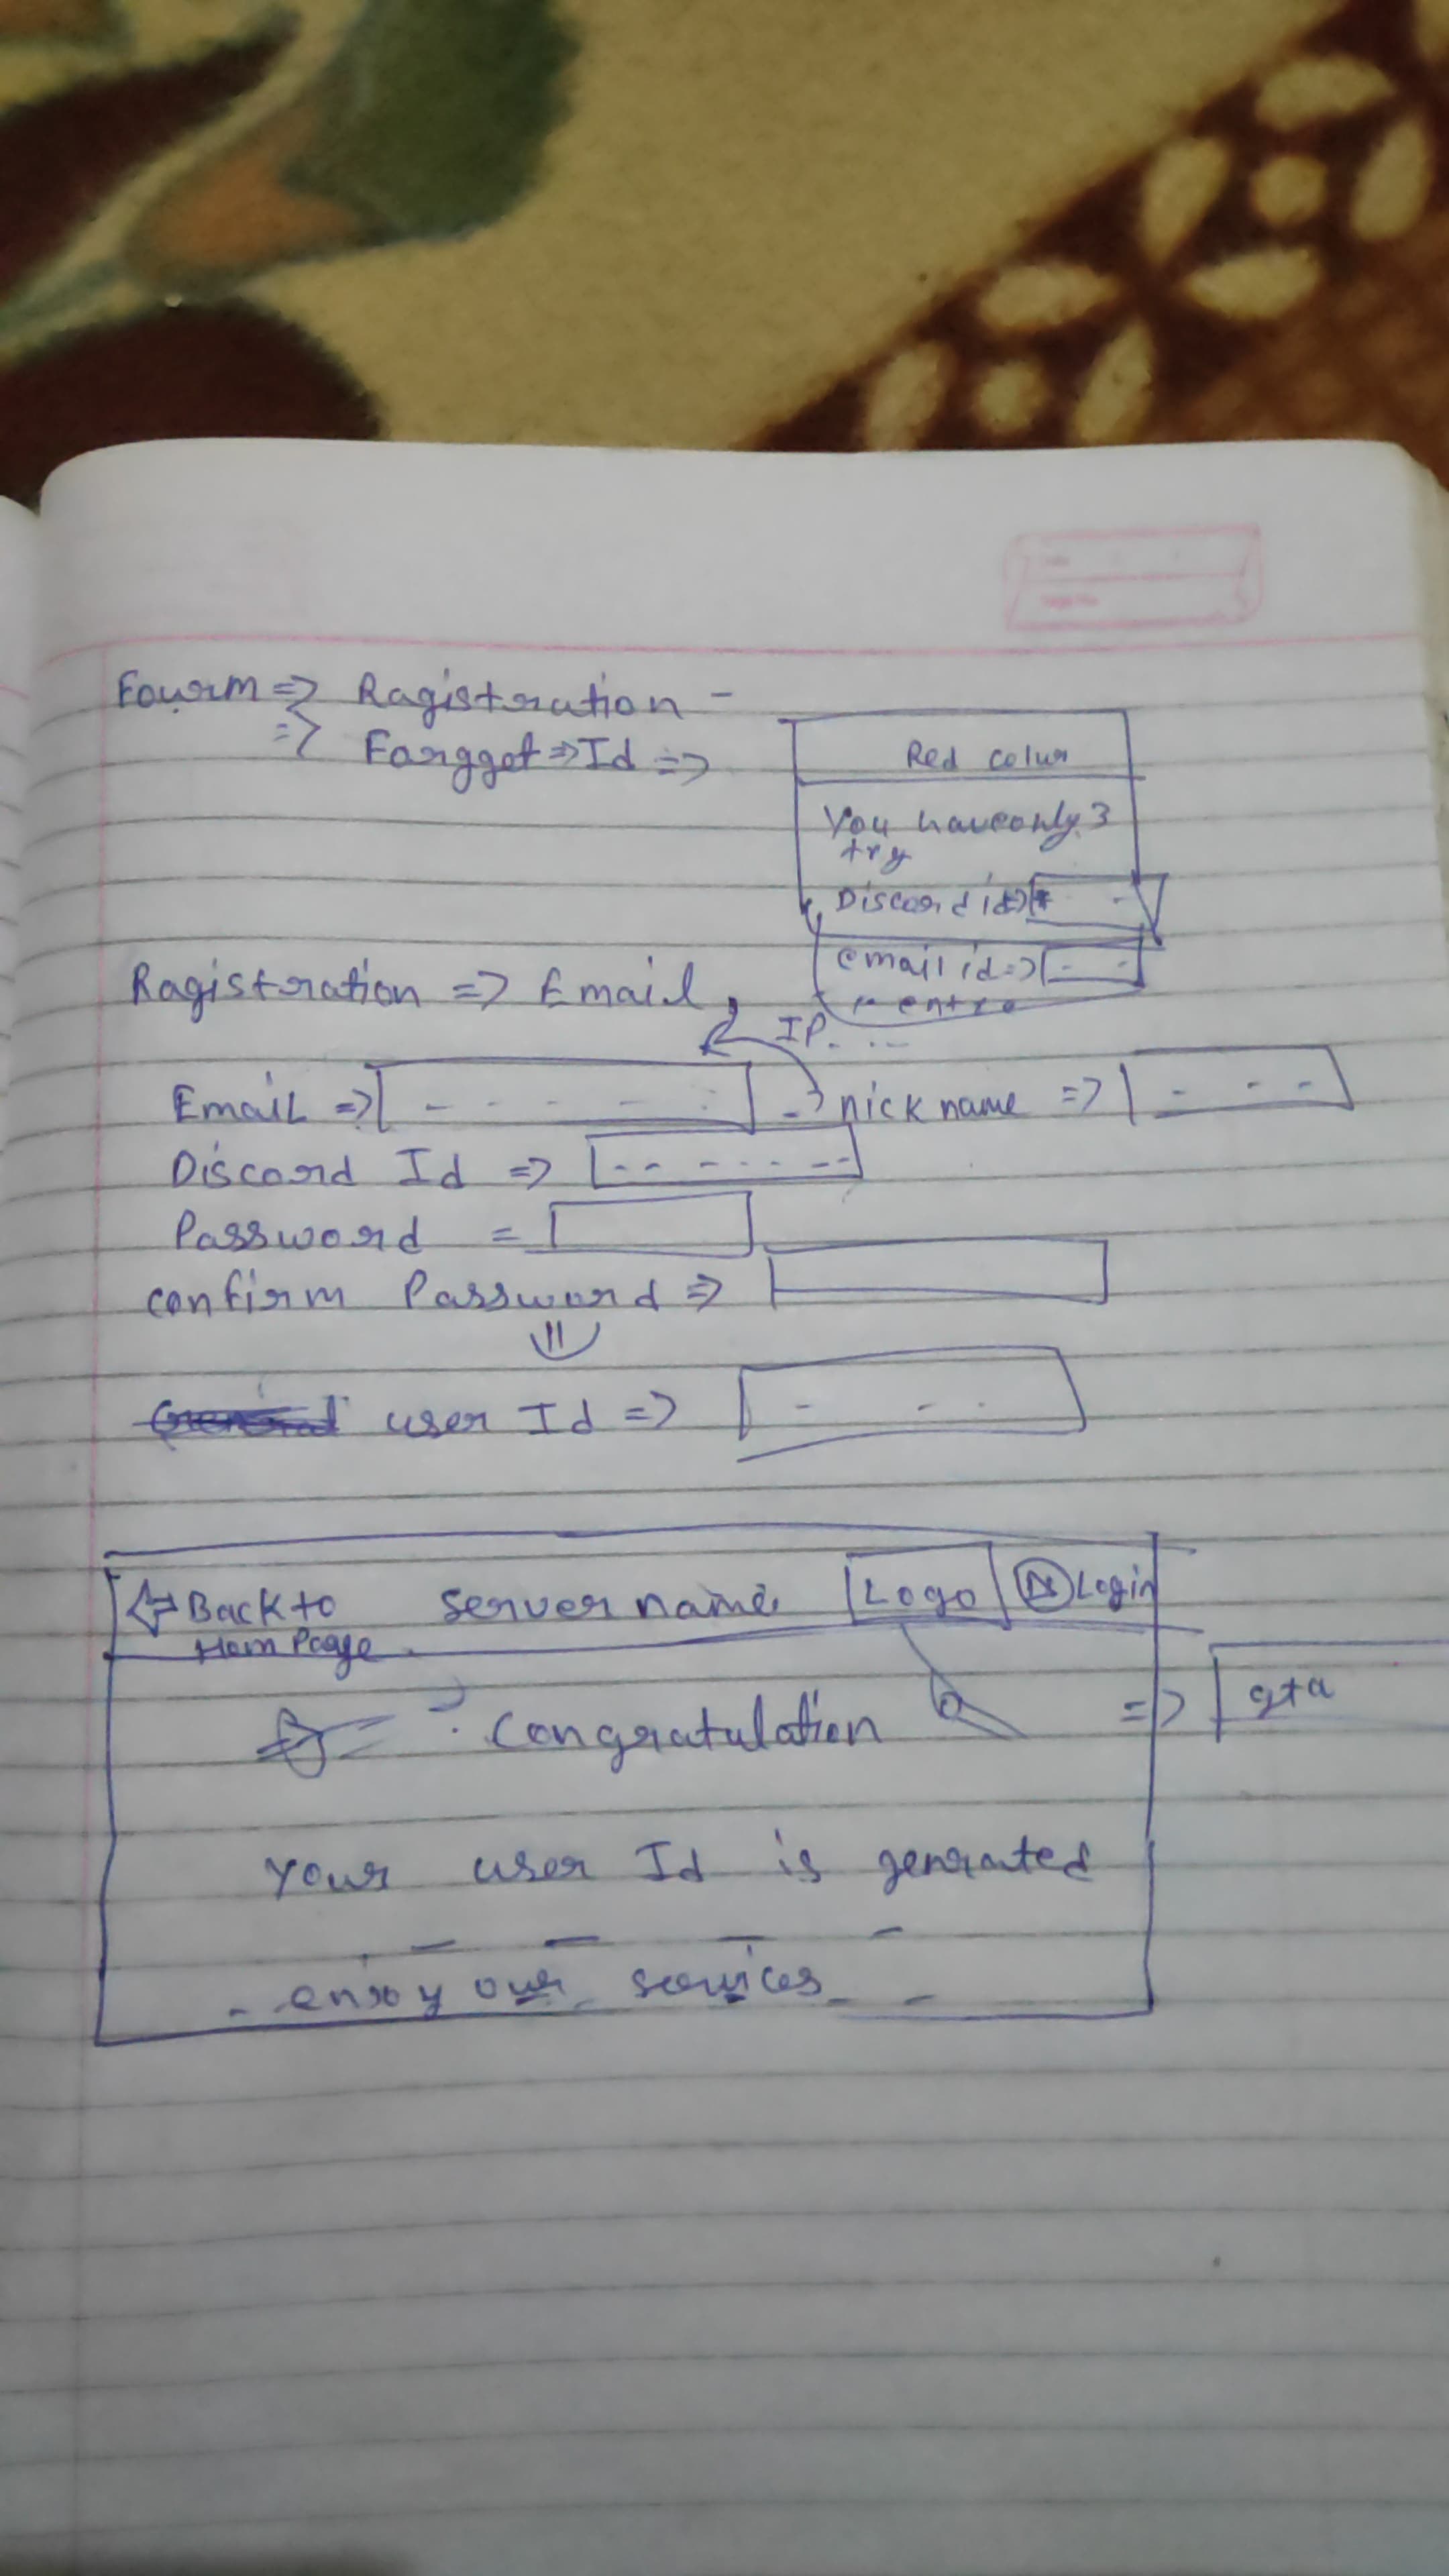 Fourm => Ragistration -
=> Fargget => Id =>
Red colur
You have only 3
try
Discord id =>
email id =>
entre
Ragistration => Email,
IP. ...
Email => nick name =>
Discord Id =>
Password =
confirm Password =>
user Id =>
Back to
Hom Page
server name
Logo
N Login
Congratulation
=> gta
Your user Id is genrated
enjoy our services